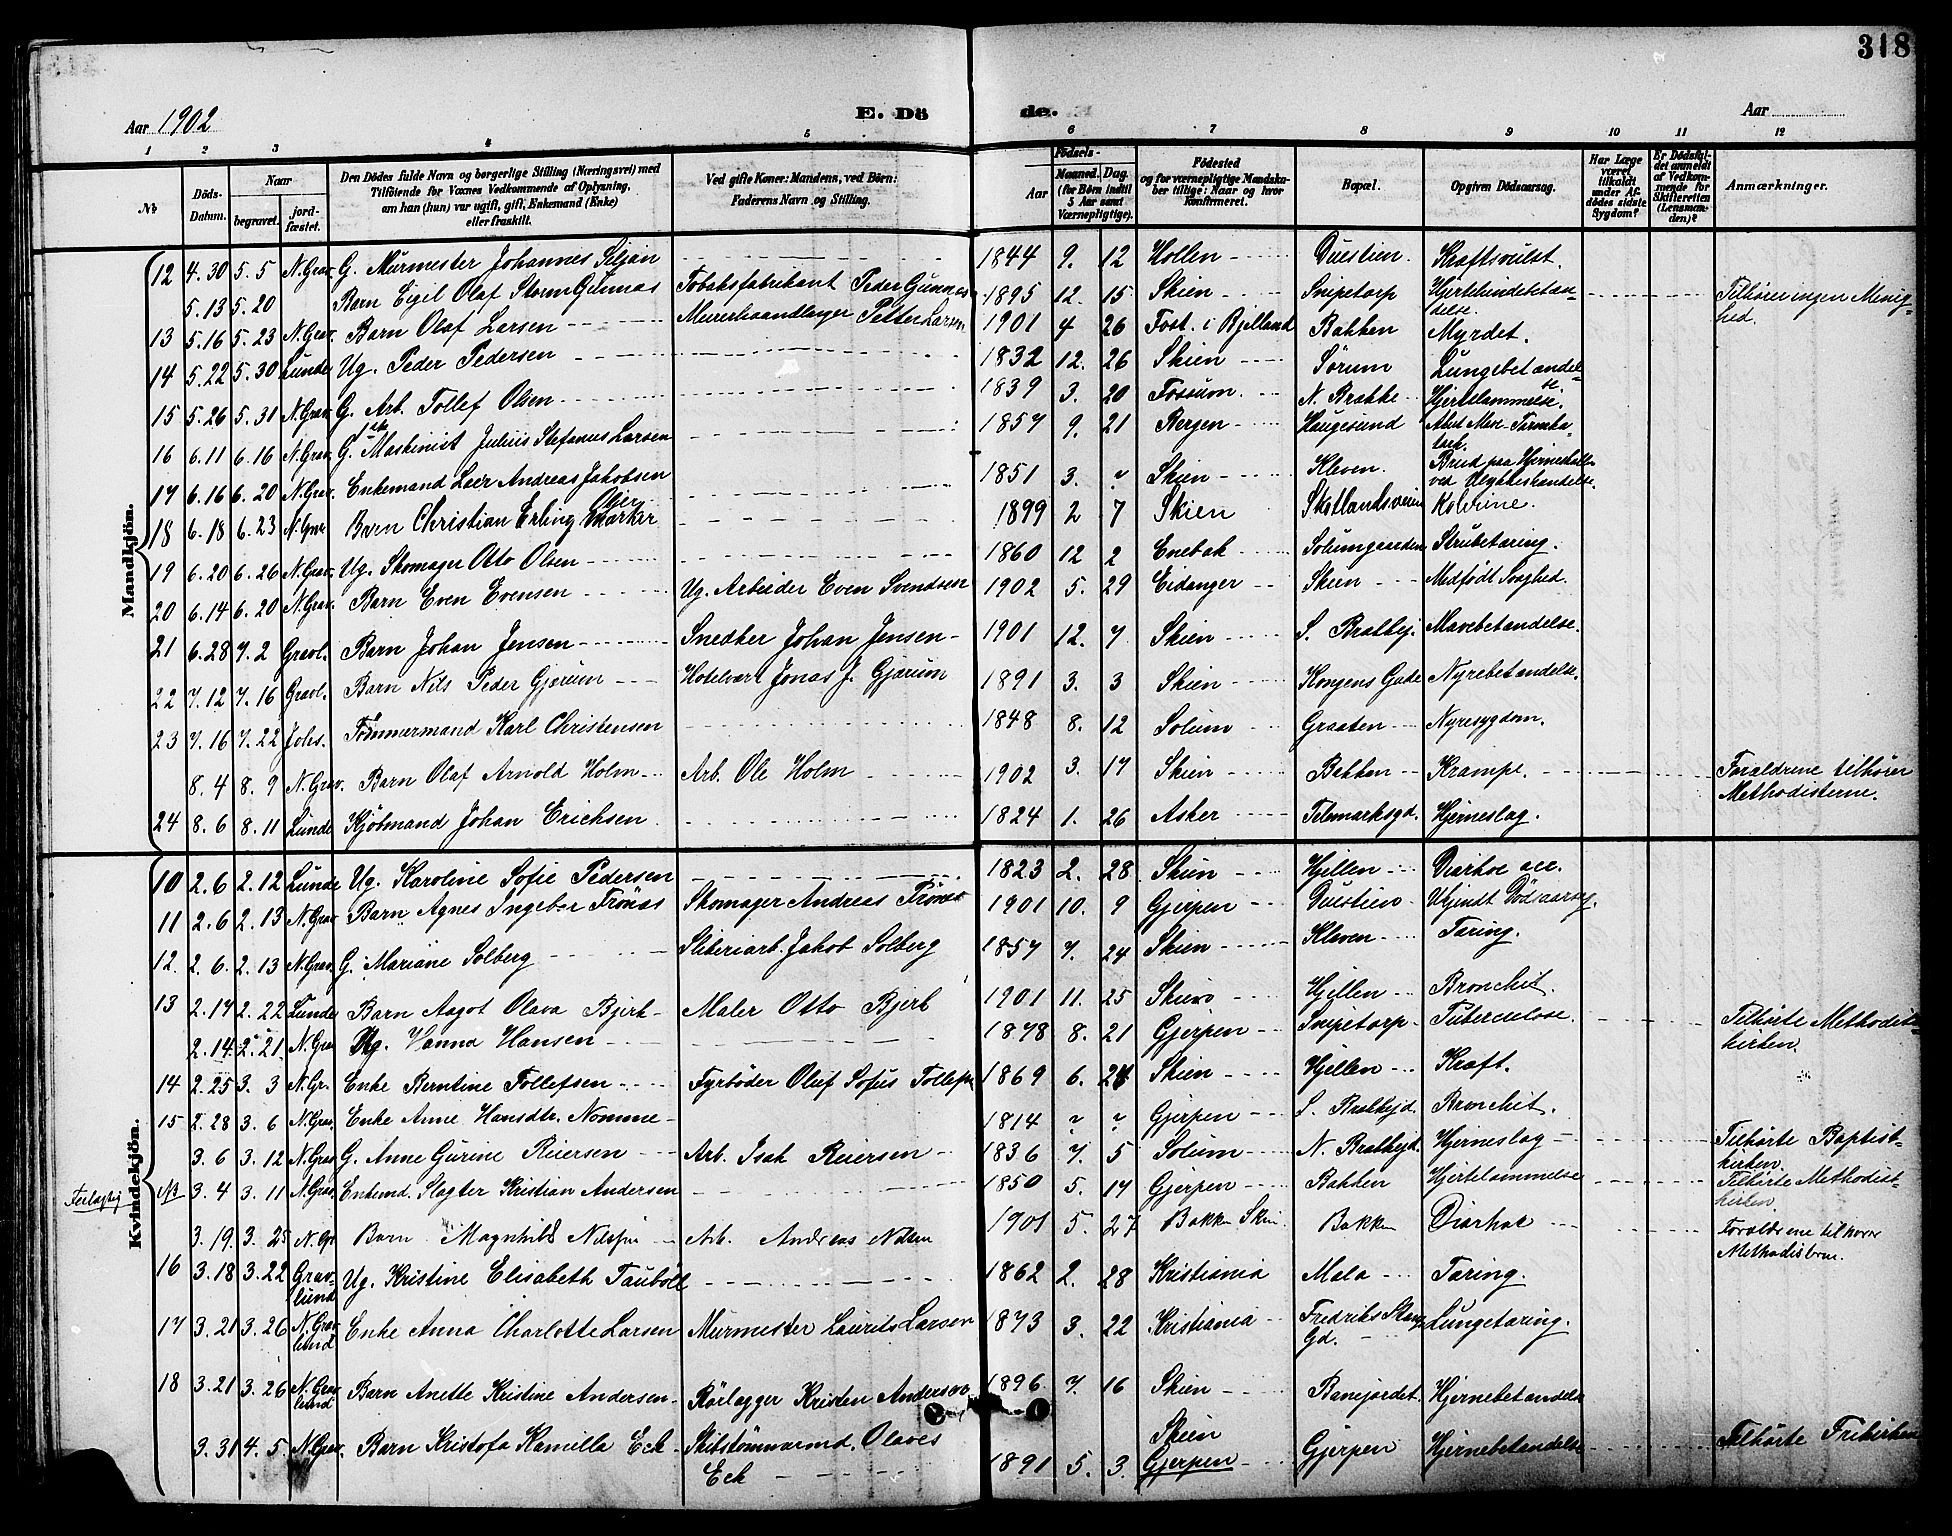 318
Aar 1902 E. Dö de. Aar
1 2 3 4 5 6 7 8 9 10 11 12
№ Döds-Datum. Naar begravet. jord-fæstet. Den Dödes fulde Navn og borgerlige Stilling (Næringsvei) med Tilföiende for Voxnes Vedkommende af Oplysning, om han (hun) var ugift, gift, Enkemand (Enke) eller fraskilt. Ved gifte Koner: Mandens, ved Börn: Faderens Navn og Stilling. Födsels- Aar Maaned. Dag. (for Börn indtil 5 Aar samt Værnepligtige). Födested og for værnepligtige Mandskaber tillige: Naar og hvor konfirmeret. Bopæl. Opgiven Dödsaarsag. Har Læge været tilkaldt under Afdödes sidste Sygdom? Er Dödsfaldet anmeldt af Vedkommende for Skifteretten (Lensmanden)? Anmærkninger.
Mandkjön.
12 4.30 5.5 N.Grav. G. Murmester Johannes Siljan 1844 9. 12 Hollen Duestien Kræftsvulst.
5.13 5.20 Barn Eigil Olaf Storm Gunnæs Tobaksfabrikant Peder Gunnæs 1895 12. 15 Skien Snipetorp Hjertehindebetændelse Tilhører ingen Menighed.
13 5.16 5.23 N.Grav. Barn Olaf Larsen Murerhaandlanger Petter Larsen 1901 4 26 Fost. i Bjelland Bakken Myrdet.
14 5.22 5.30 Lunde Ug. Peder Pedersen 1832 12. 26 Skien Sørum Lungebetændelse
15 5.26 5.31 N.Grav. G. Arb. Tollef Olsen 1839 3. 20 Fossum N. Brække Hjertelammelse.
16 6.11 6.16 N.Grav. G. Maskinist Julius Stefanus Larsen 1857 9. 21 Bergen Haugesund Akut Mave-Tarmka-
17 6.16 6.20 N.Grav. Enkemand Leier Andreas Jakobsen 1851 3. ? Skien Kleven. Brud paa Hjerneskallen ved Ulykkeshændelse.
18 6.18 6.23 N.Grav Barn Christian Erling Marker 1899 2 7 Skien Skotlandsveien Kolerine.
19 6.20 6.26 N.Grav. Ug. Skomager Otto Olsen 1860 12 2 Enebak Solumgaarden Strubetæring.
20 6.14 6.20 N.Grav. Barn Even Evensen Ug. Arbeider Even Svendsen 1902 5. 29 Eidanger Skien Medfødt Svaghed.
21 6.28 7.2 Gravl. Barn Johan Jensen Snedker Johan Jensen 1901 12. 7 Skien S. Brækkej. Mavebetændelse.
22 7.12 7.16 Gravl. Barn Nils Peder Gjærum Hotelvært Jonas J. Gjærum 1891 3. 3 Skien Kongens Gade Nyrebetændelse.
23 7.16 7.22 Johs. Tømmermand Karl Christensen 1848 8. 12 Solum Graaten Nyresygdom.
8.4 8.9 N.Grav. Barn Olaf Arnold Holm Arb. Ole Holm 1902 3. 17 Skien Bakken Krampe. Forældrene tilhører Methodisterne.
24 8.6 8.11 Lunde Kjöbmand Johan Erichsen 1824 1. 26 Asker Telemarksgd. Hjerneslag.
Kvindekjön.
10 2.6 2.12 Lunde Ug. Karoline Sofie Pedersen 1823 2. 28 Skien Hjellen Diarhoe acc.
11 2.6 2.13 N.Grav Barn Agnes Ingeber Trönæs Skomager Andreas Trönæs 1901 10. 9 Gjerpen Duestien Ukjendt Dødsaarsag.
12. 2.6. 2.13 N.Grav. G. Mariane Solberg Sliberiarb. Jakob Solberg 1857 7. 24 Skien Kleven Tæring.
13 2.17 2.22 Lunde Barn Aagot Olava Bjerk Maler Otto Bjerk 1901 11. 25 Skien Hjellen Bronchit.
2.14. 2.21 N.Grav Ug. Hanna Hansen 1878 8. 21 Gjerpen Snipetorp Tuberculose. Tilhørte Methodistkirken.
14 2.25 3.3 N.Gr. Enke Berntine Tollefsen Fyrbøder Oluf Sofus Tollefsn 1869 6. 26 Skien Hjellen Kræft.
15 2.28 3.6 N.Grav. Enke Anne Hansdtr. Nomme 1814 ? ? Gjerpen S. Brækkejd. Bronchit.
3.6 3.12 N.Grav G. Anne Gurine Reiersen Arb. Isak Reiersen 1836 7. 5 Solum N. Brækkejd. Hjerneslag Tilhørte Baptistkirken.
NB 3.4 3.11 N.Grav Enkemd. Slagter Kristian Andersen 1850 5. 17 Gjerpen Bakken Hjertelammelse Tilhørte Methodistkirken.
3.19. 3.25 N.Gr. Barn Magnhild Nilssen Arb. Andreas Nilsen 1901 5. 27 Bakken Skien Bakken Diarhoe Forældrene tilhører Methodisterne.
16 3.18 3.22 Gravlund Ug. Kristine Elisabeth Tauböll 1862 2. 28 Kristiania Mæla Tæring.
17 3.21 3.26 N.Gravlund Enke Anna Charlotte Larsen Murmester Laurits Larsen 1873 3. 22 Kristiania Fredriks Stangs Gd. Lungetæring.
18 3.21 3.26 N.Gravlund Barn Anette Kristine Andersen Rörlægger Kristen Andersen 1896. 7. 16 Skien Banejordet. Hjernebetændelse
3.31 4.5 N.Grav. Barn Kristofa Kamilla Eck Skibstømmermd. Olaves Eck 1891 5. 3. Skien Gjerpen Gjerpen Hjernebetændelse Tilhørte Frikirken